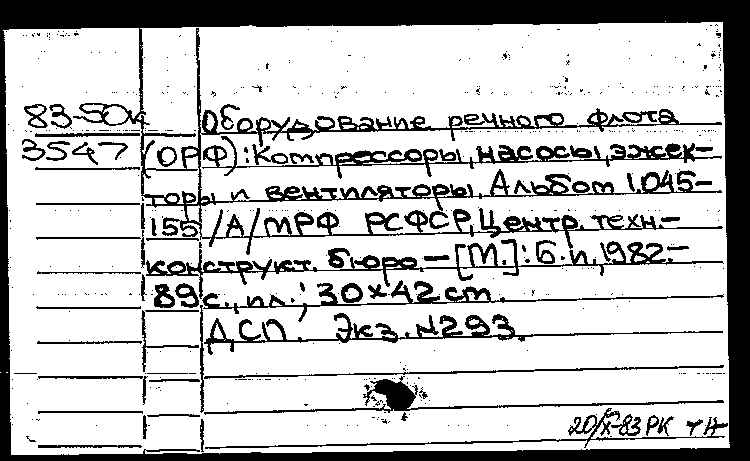 83-50к Оборудование речного флота
3547 (ОРФ): Компрессоры, насосы, эжек-
торы и вентиляторы. Альбом 1.045-
155/А/МРФ РСФСР, Центр. техн.-
конструкт. бюро.—[М.]: Б.и., 1982.-
89с., ил.; 30×42 cm.
ДСП. Экз. №293.
20/X-83 РК